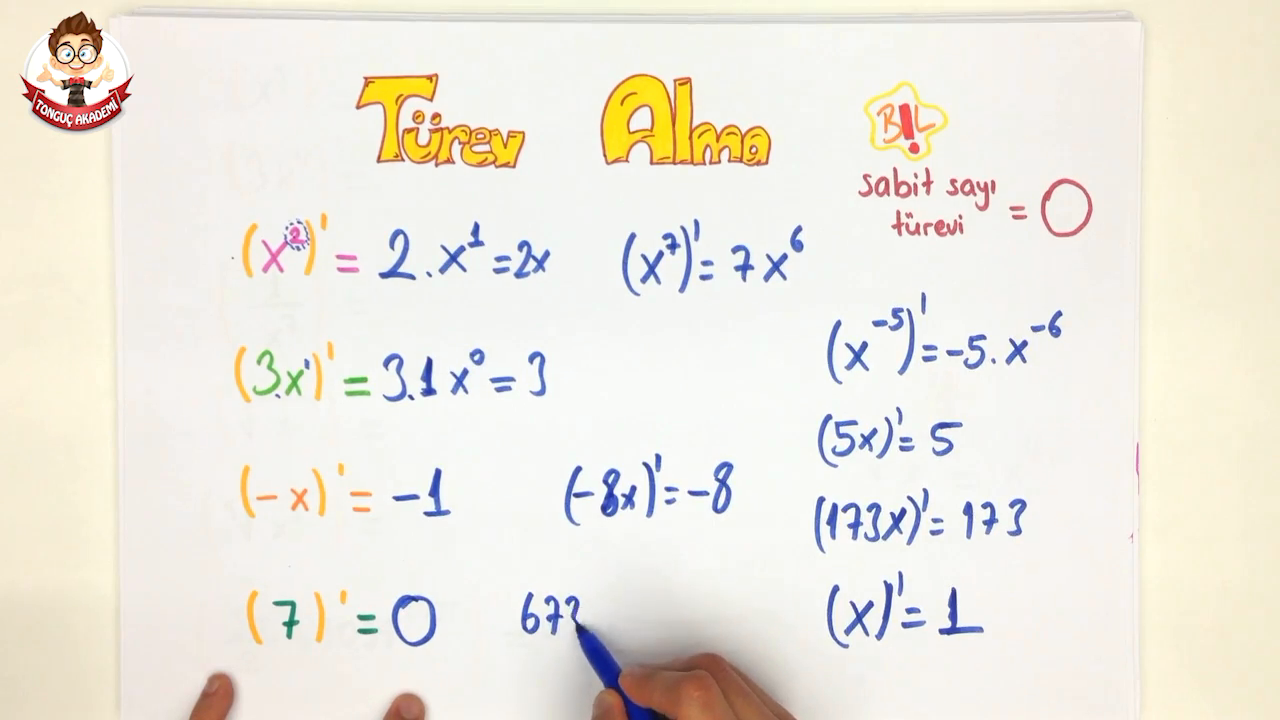 TONGUÇ AKADEMİ
Türev Alma
BİL
sabit sayı
türevi = 0
(x²)' = 2.x¹ = 2x
(x⁷)' = 7x⁶
(x⁻⁵)' = -5.x⁻⁶
(3.x¹)' = 3.1x⁰ = 3
(5x)' = 5
(-x)' = -1
(-8x)' = -8
(173x)' = 173
(7)' = 0
67
(x)' = 1